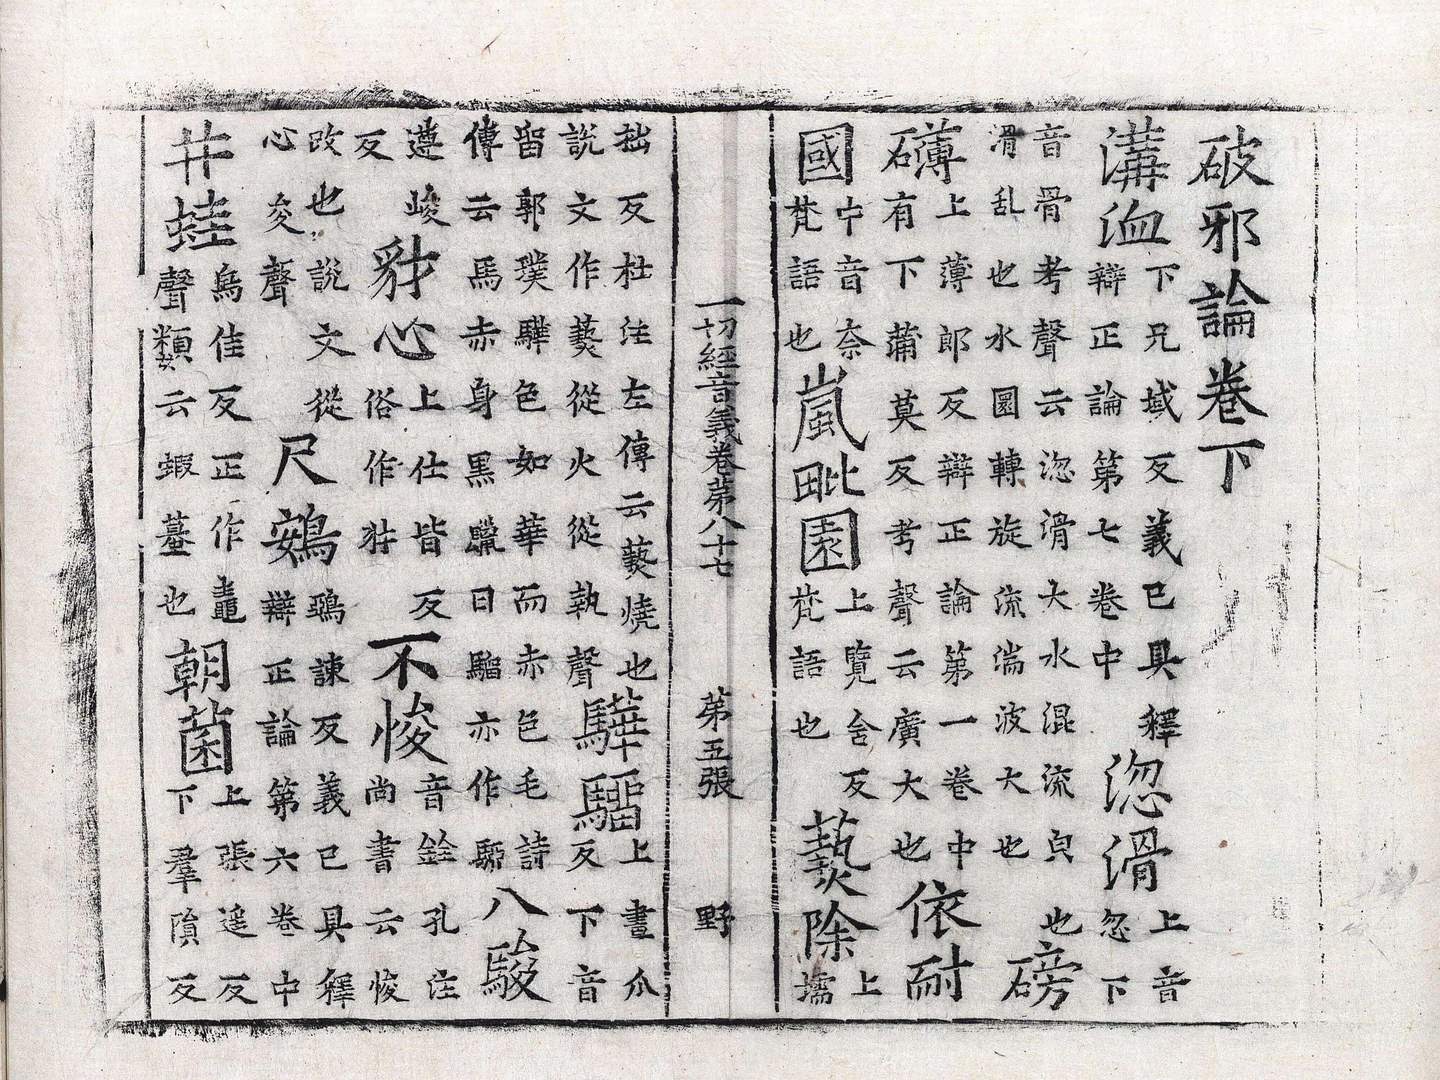 破邪論卷下
溝洫下兄域反義已具釋辯正論第七卷中淴滑上音忽下
音骨考聲云淴滑大水混流皃也滑乱也水圂轉旋流湍波大也磅
礴上薄郎反辯正論第一卷中有下蒱莫反考聲云廣大也依耐
國中音奈梵語也嵐毗園上覽舍反梵語也爇除上壖
一切經音義卷第八十七 第五張 野
拙反杜注左傳云爇燒也說文作爇從火執聲驊騮上畫瓜反下音
留郭璞驊色如華而赤色毛詩傳云馬赤身黑鬣曰騮亦作駵八駿
遵峻反豺心上仕皆反俗作犲不悛音銓孔注尚書云悛
改也說文從心夋聲尺鷃鵶諫反義已具釋辯正論第六卷中
井蛙烏佳反正作鼃聲類云蝦蟇也朝菌上張遥反下羣隕反